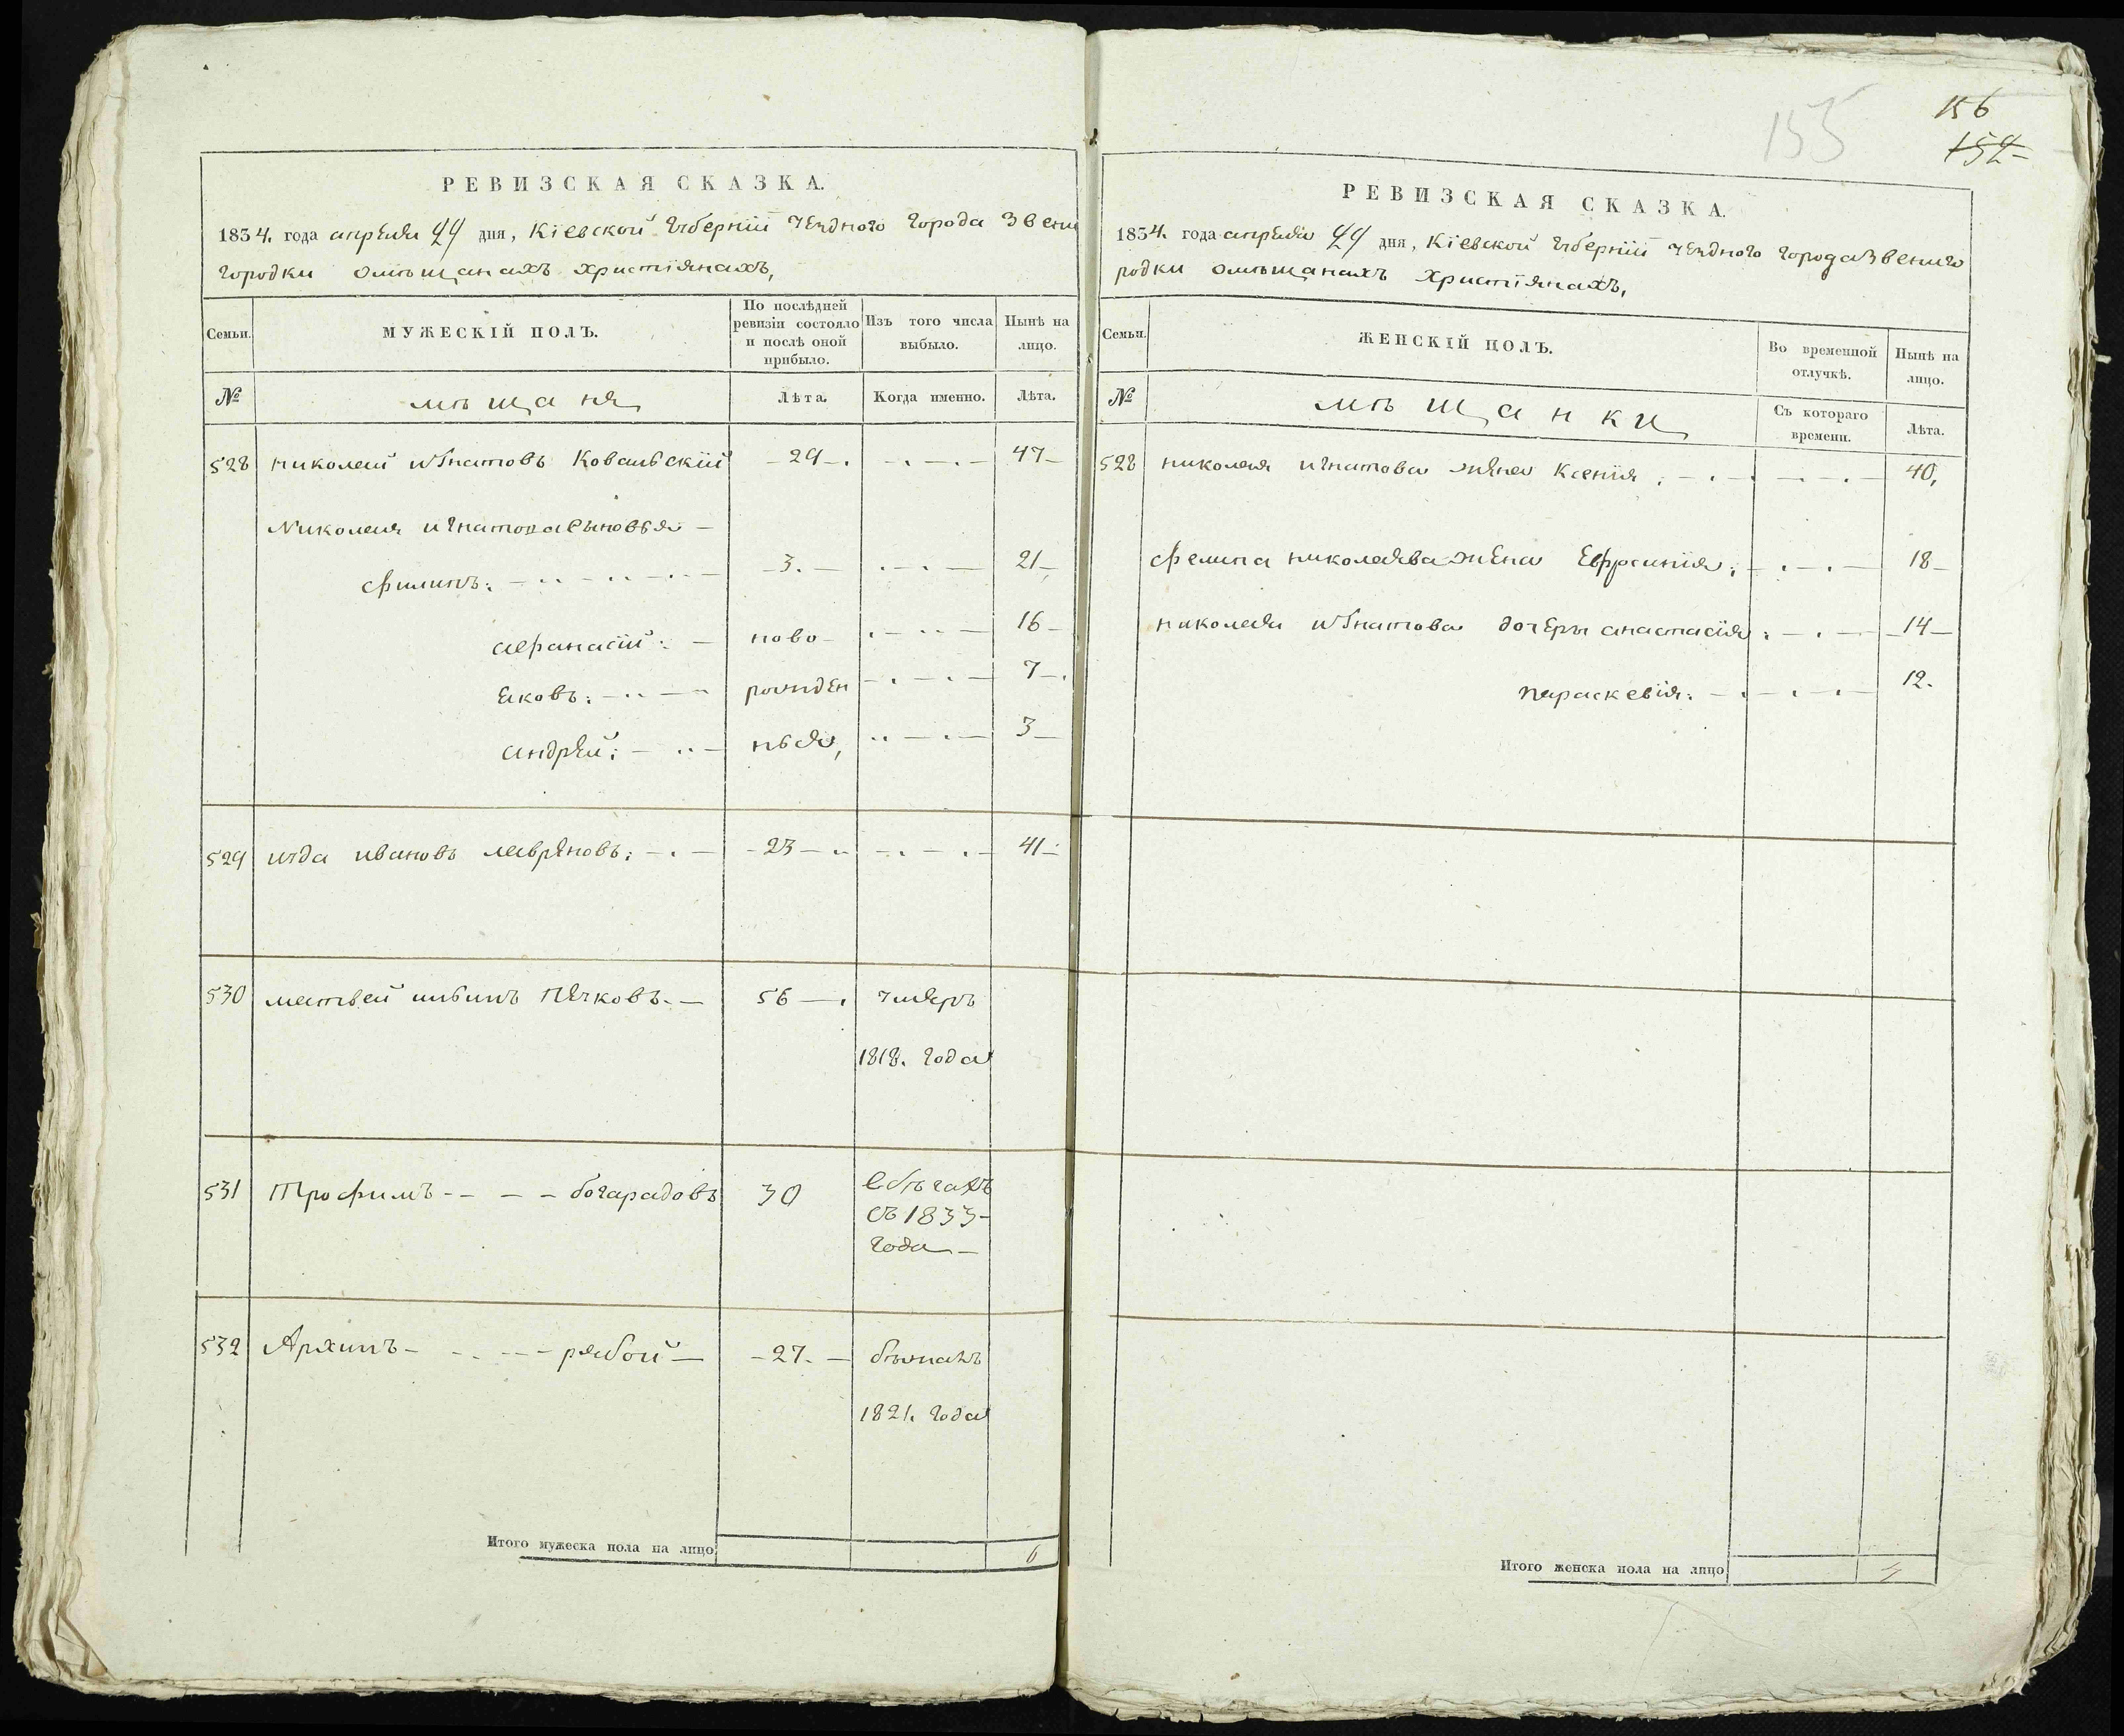 155
156
152
РЕВИЗСКАЯ СКАЗКА.
1834. года апреля 24 дня, Кіевской Губерніи уезднаго города Звени
городки омѣщанахъ християнахъ,
Семьи.
МУЖЕСКІЙ ПОЛЪ.
По послѣдней ревизіи состояло и послѣ оной прибыло.
Изъ того числа выбыло.
Нынѣ на лицо.
№
мѣщаня
Лѣта.
Когда именно.
Лѣта.
528 николай игнатовъ Ковальскій -29-. 47-
Николая игнатова сыновья -
филипъ: -3.- 21-
афанасій: - ново- 16-
яковъ: рожден 7-.
андрей: нъся, 3-
529 иванов -23- 41-
530 матвей 56-. умеръ
1818. года
531 Трофимъ - - - - 30 вбѣгахъ
съ 1833-
года -
532 Архипъ - рябой - -27.- бѣжалъ
1821. года
Итого мужеска пола на лицо 6
РЕВИЗСКАЯ СКАЗКА.
1834. года апреля 24 дня, Кіевской Губерніи уезднаго города Звениго
родки омѣщанахъ християнахъ,
Семьи.
ЖЕНСКІЙ ПОЛЪ.
Во временной отлучкѣ.
Нынѣ на лицо.
№
мѣщанки
Съ котораго времени.
Лѣта.
528 николая игнатова жена Ксенія. 40,
фелипа николаева жена Ефросинія: 18-
николая игнатова дочери анастасія: -14-
параскевія: 12.
Итого женска пола на лицо 4